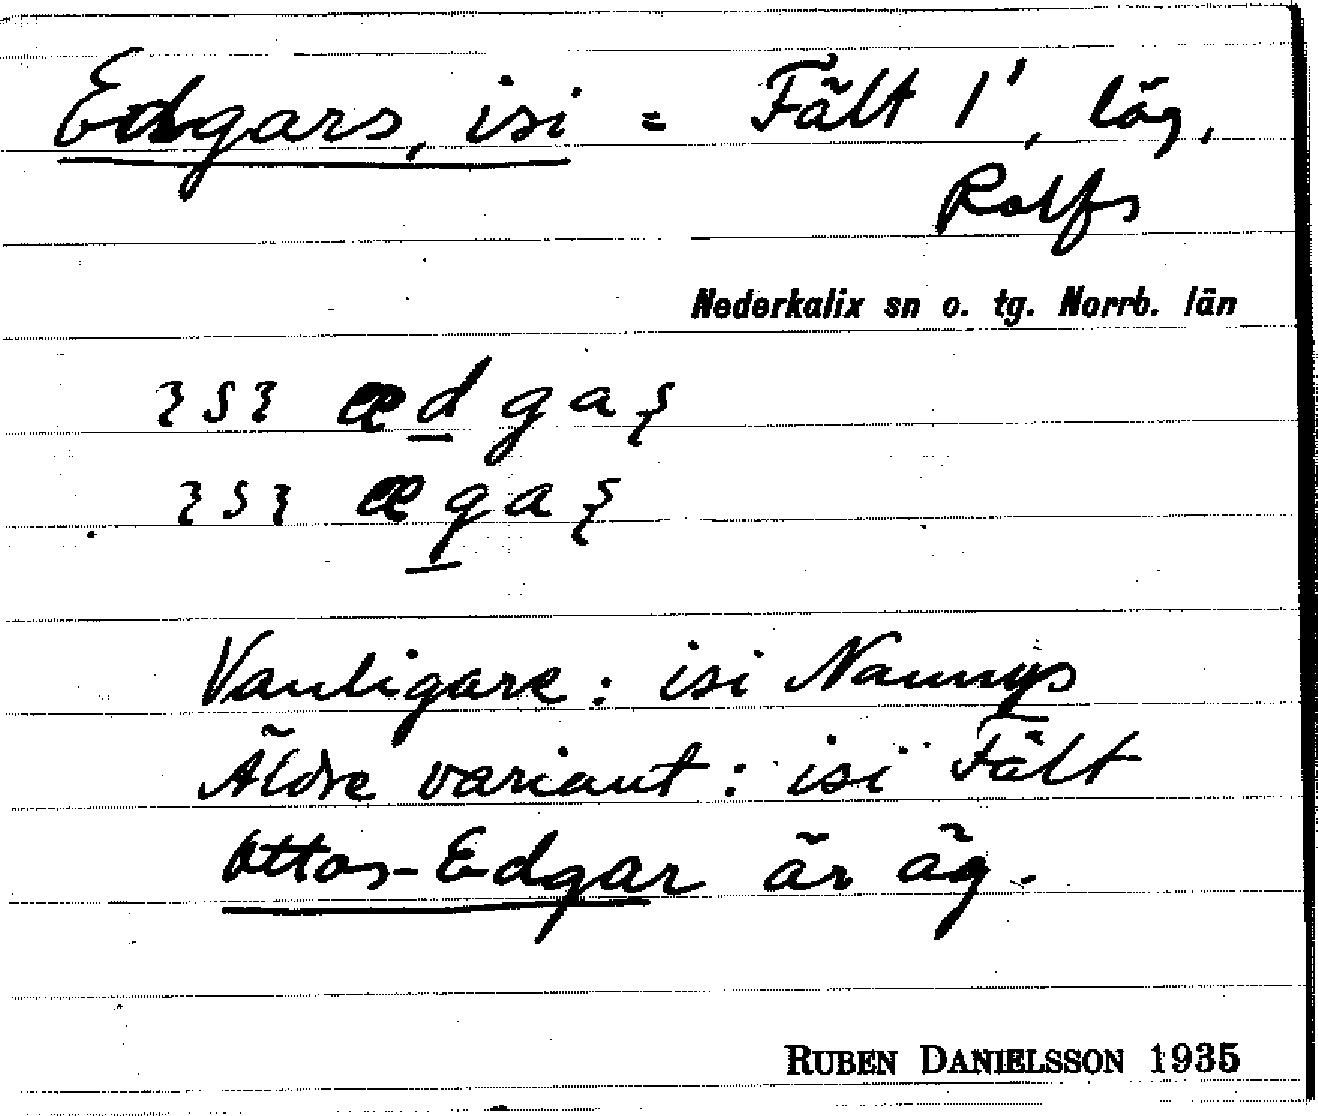 Edgars, isi = Fält 1', läg,
Rolfs
Nederkalix sn o. tg. Norrb. län
ædga
æga
Vanligare: isi Nannys
Äldre variant: isi Fält
Ottos-Edgar är äg.
RUBEN DANIELSSON 1935